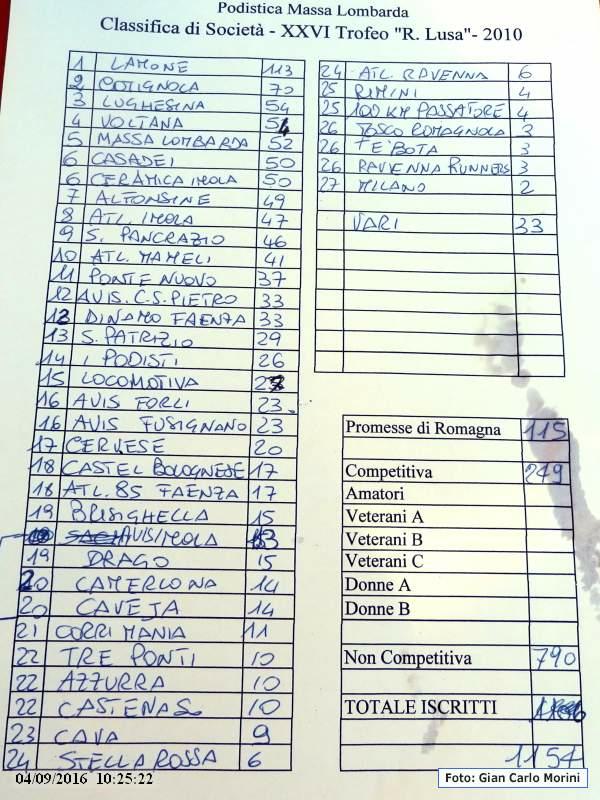 Podistica Massa Lombarda
Classifica di Società - XXVI Trofeo "R. Lusa"- 2010
1 LAMONE 113
2 COTIGNOLA 70
3 LUGHESINA 54
4 VOLTANA
5 MASSA LOMBARDA 52
6 CASADEI 50
6 CERAMICA IMOLA 50
7 ALFONSINE 49
8 ATL. IMOLA 47
9 S. PANCRAZIO 46
10 ATL. MAMELI 41
11 PONTE NUOVO 37
12 AVIS. C.S. PIETRO 33
12 DINAMO FAENZA 33
13 S. PATRIZIO 29
14 I PODISTI 26
15 LOCOMOTIVA
16 AVIS FORLI 23
16 AVIS FUSIGNANO 23
17 CERVESE 20
18 CASTEL BOLOGNESE 17
18 ATL. 85 FAENZA 17
19 BRISIGHELLA 15
AVIS IMOLA
19 DRAGO 15
20 CAMERLONA 14
20 CAVEJA 14
21 CORRIMANIA 11
22 TRE PONTI 10
22 AZZURRA 10
22 CASTENASO 10
23 CAVA 9
24 STELLA ROSSA 6
24 ATL. RAVENNA 6
25 RIMINI 4
25 100 KM PASSATORE 4
26 TOSCO ROMAGNOLA 3
26 TE BOTA 3
26 RAVENNA RUNNERS 3
27 MILANO 2
VARI 33
Promesse di Romagna 115
Competitiva 249
Amatori
Veterani A
Veterani B
Veterani C
Donne A
Donne B
Non Competitiva 790
TOTALE ISCRITTI
1154
04/09/2016 10:25:22
Foto: Gian Carlo Morini